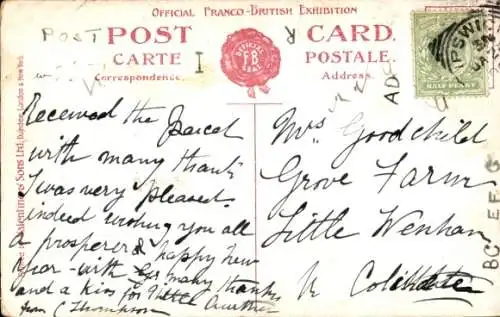 Official Franco-British Exhibition
POST CARD.
CARTE POSTALE.
Correspondence.
Address.
OFFICIAL
F.B
SEAL
HALF PENNY
IPSWI
Valentine & Sons Ltd, Dundee, London & New York.
POST
I
AD
BC E F G
Received the Parcel
with many thanks
I was very pleased
indeed wishing you all
a prosperer & happy New
Year - with many thanks
and a kiss for
from C Thompson
Mrs Goodchild
Grove Farm
Little Wenham
Nr Colchester